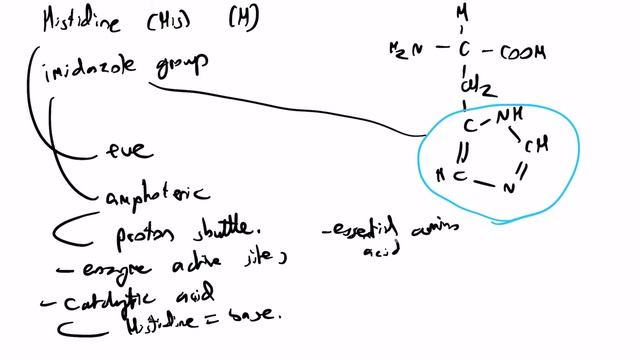 Histidine (His) (H)
imidazole group
+ve
amphoteric
proton shuttle.
- enzyme active site,
- Catalytic acid
Histidine = base.
- essential amino
acid
H
H2N - C - COOH
CH2
C - NH
CH
H C - N